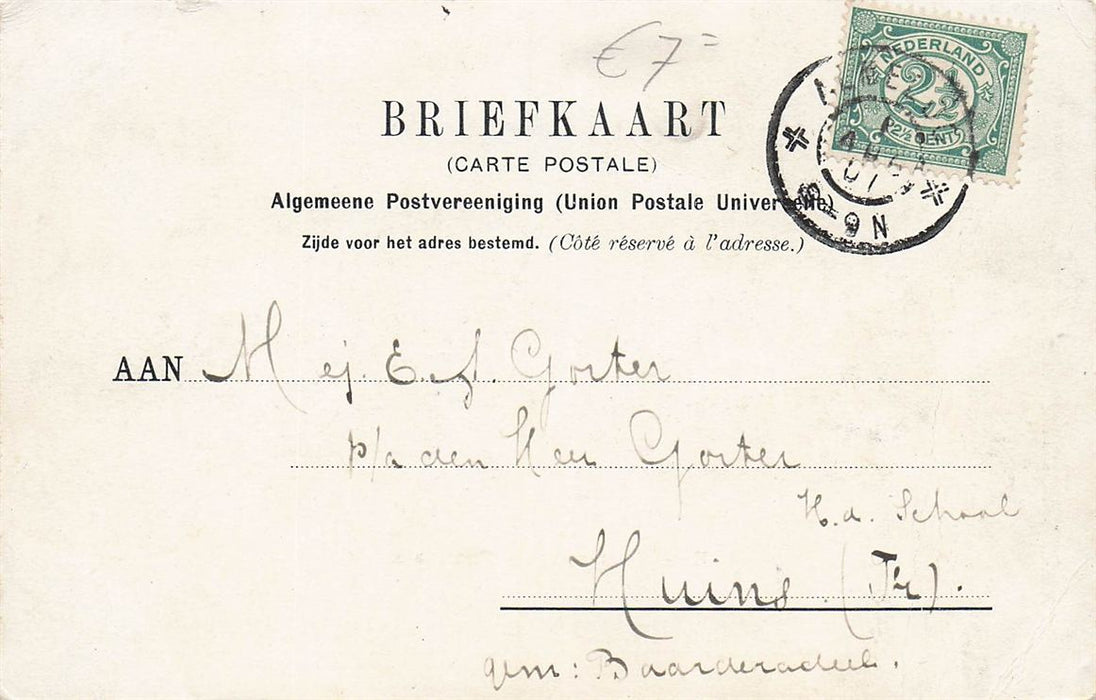 € 7=
NEDERLAND
2½
2½ CENT
8-9N
BRIEFKAART
(CARTE POSTALE)
Algemeene Postvereeniging (Union Postale Universelle)
Zijde voor het adres bestemd. (Côté réservé à l'adresse.)
AAN Mej. E. A. Gorter
p/a den Heer Gorter
H.d. School
Huins (Fr).
gem: Baarderadeel.